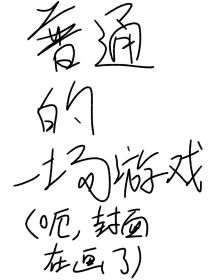 普通
的
一场游戏
(呃,封面
在画了)